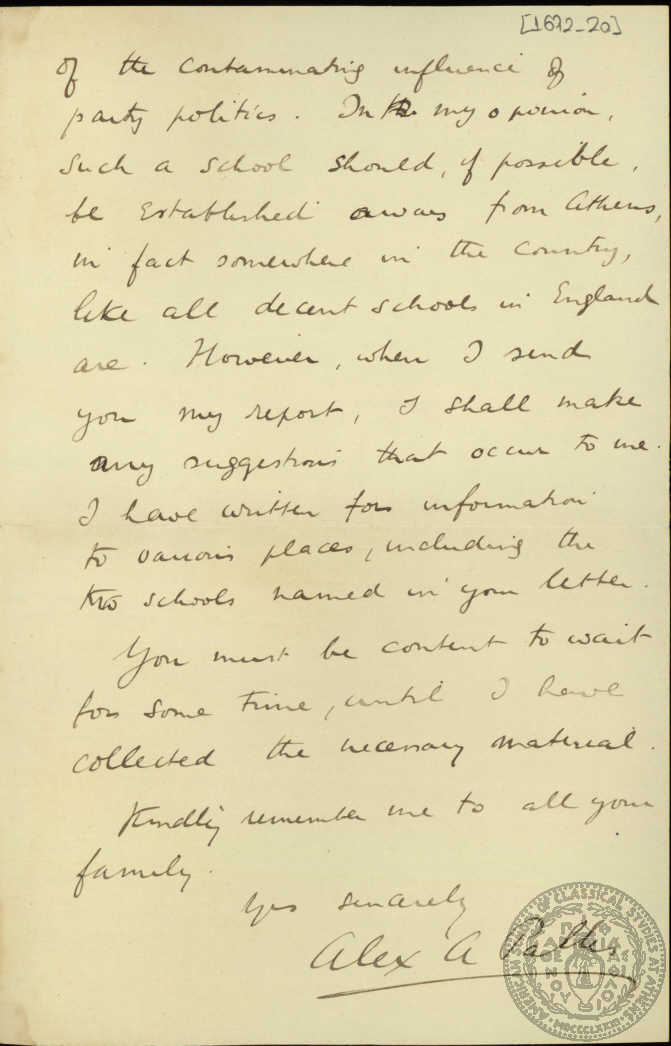 [1672_20]
of the contaminating influence of
party politics. In my opinion,
such a school should, if possible,
be established away from Athens,
in fact somewhere in the country,
like all decent schools in England
are. However, when I send
you my report, I shall make
any suggestions that occur to me.
I have written for information
to various places, including the
two schools named in your letter.
You must be content to wait
for some time, until I have
collected the necessary material.
Kindly remember me to all your
family.
Yrs sincerely
Alex A
AMERICAN SCHOOL OF CLASSICAL STUDIES AT ATHENS
MDCCCLXXXI